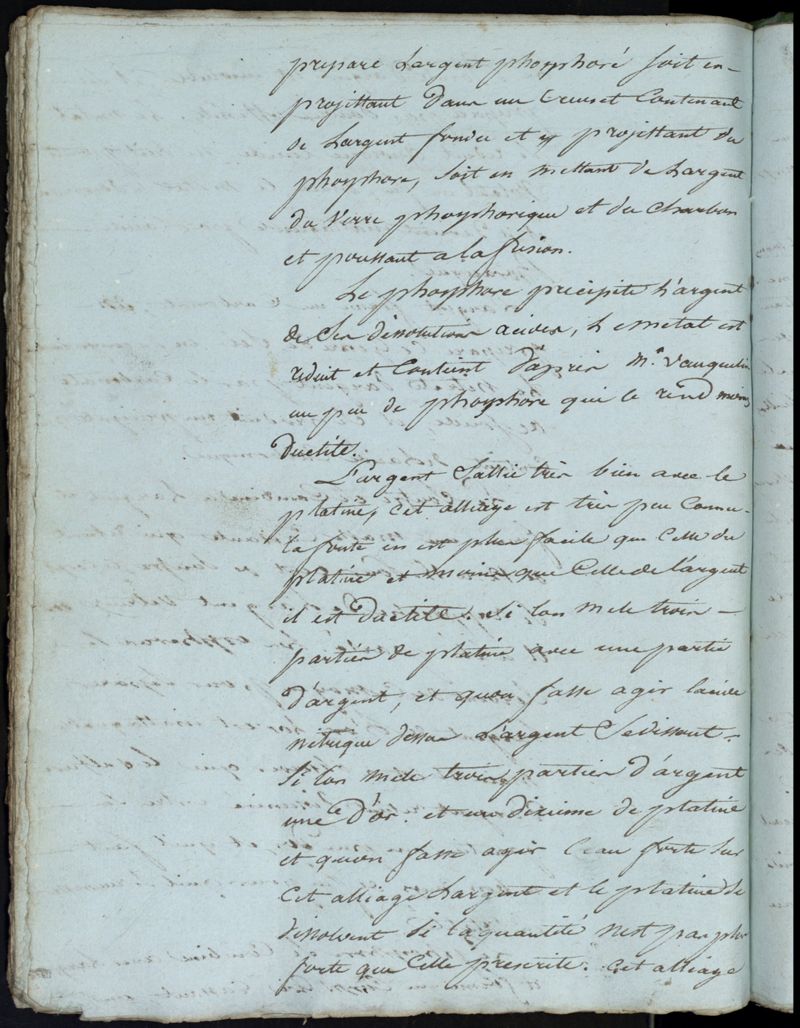 prepare Largent phosphoré soit en
projettant dans un Creuset Contenant
de Largent fondu et en projettant du
phosphore, soit en mettant de Largent
du Verre phosphorique et du Charbon
et poussant a la fusion.
Le phosphore precipite L'argent
de ses dissolutions acides, Le metal est
reduit et Contient d'après Mr. Vauquelin
un peu de phosphore qui le rend moins
ductile.
L'argent S'allie très bien avec le
platine, Cet alliage est très peu Connu
la fonte en est plus facile que Celle du
platine et moins que Celle de l'argent
il est Ductile. Si lon mele trois
parties de platine avec une partie
D'argent, et quon fasse agir lacide
nitrique dessus Largent Se dissout.
Si lon mele trois parties D'argent
une D'or. et un dixieme de platine
et quon fasse agir Leau forte sur
Cet alliage Largent et le platine se
dissolvent si la quantité n'est pas plus
forte que Celle prescrite. Cet alliage